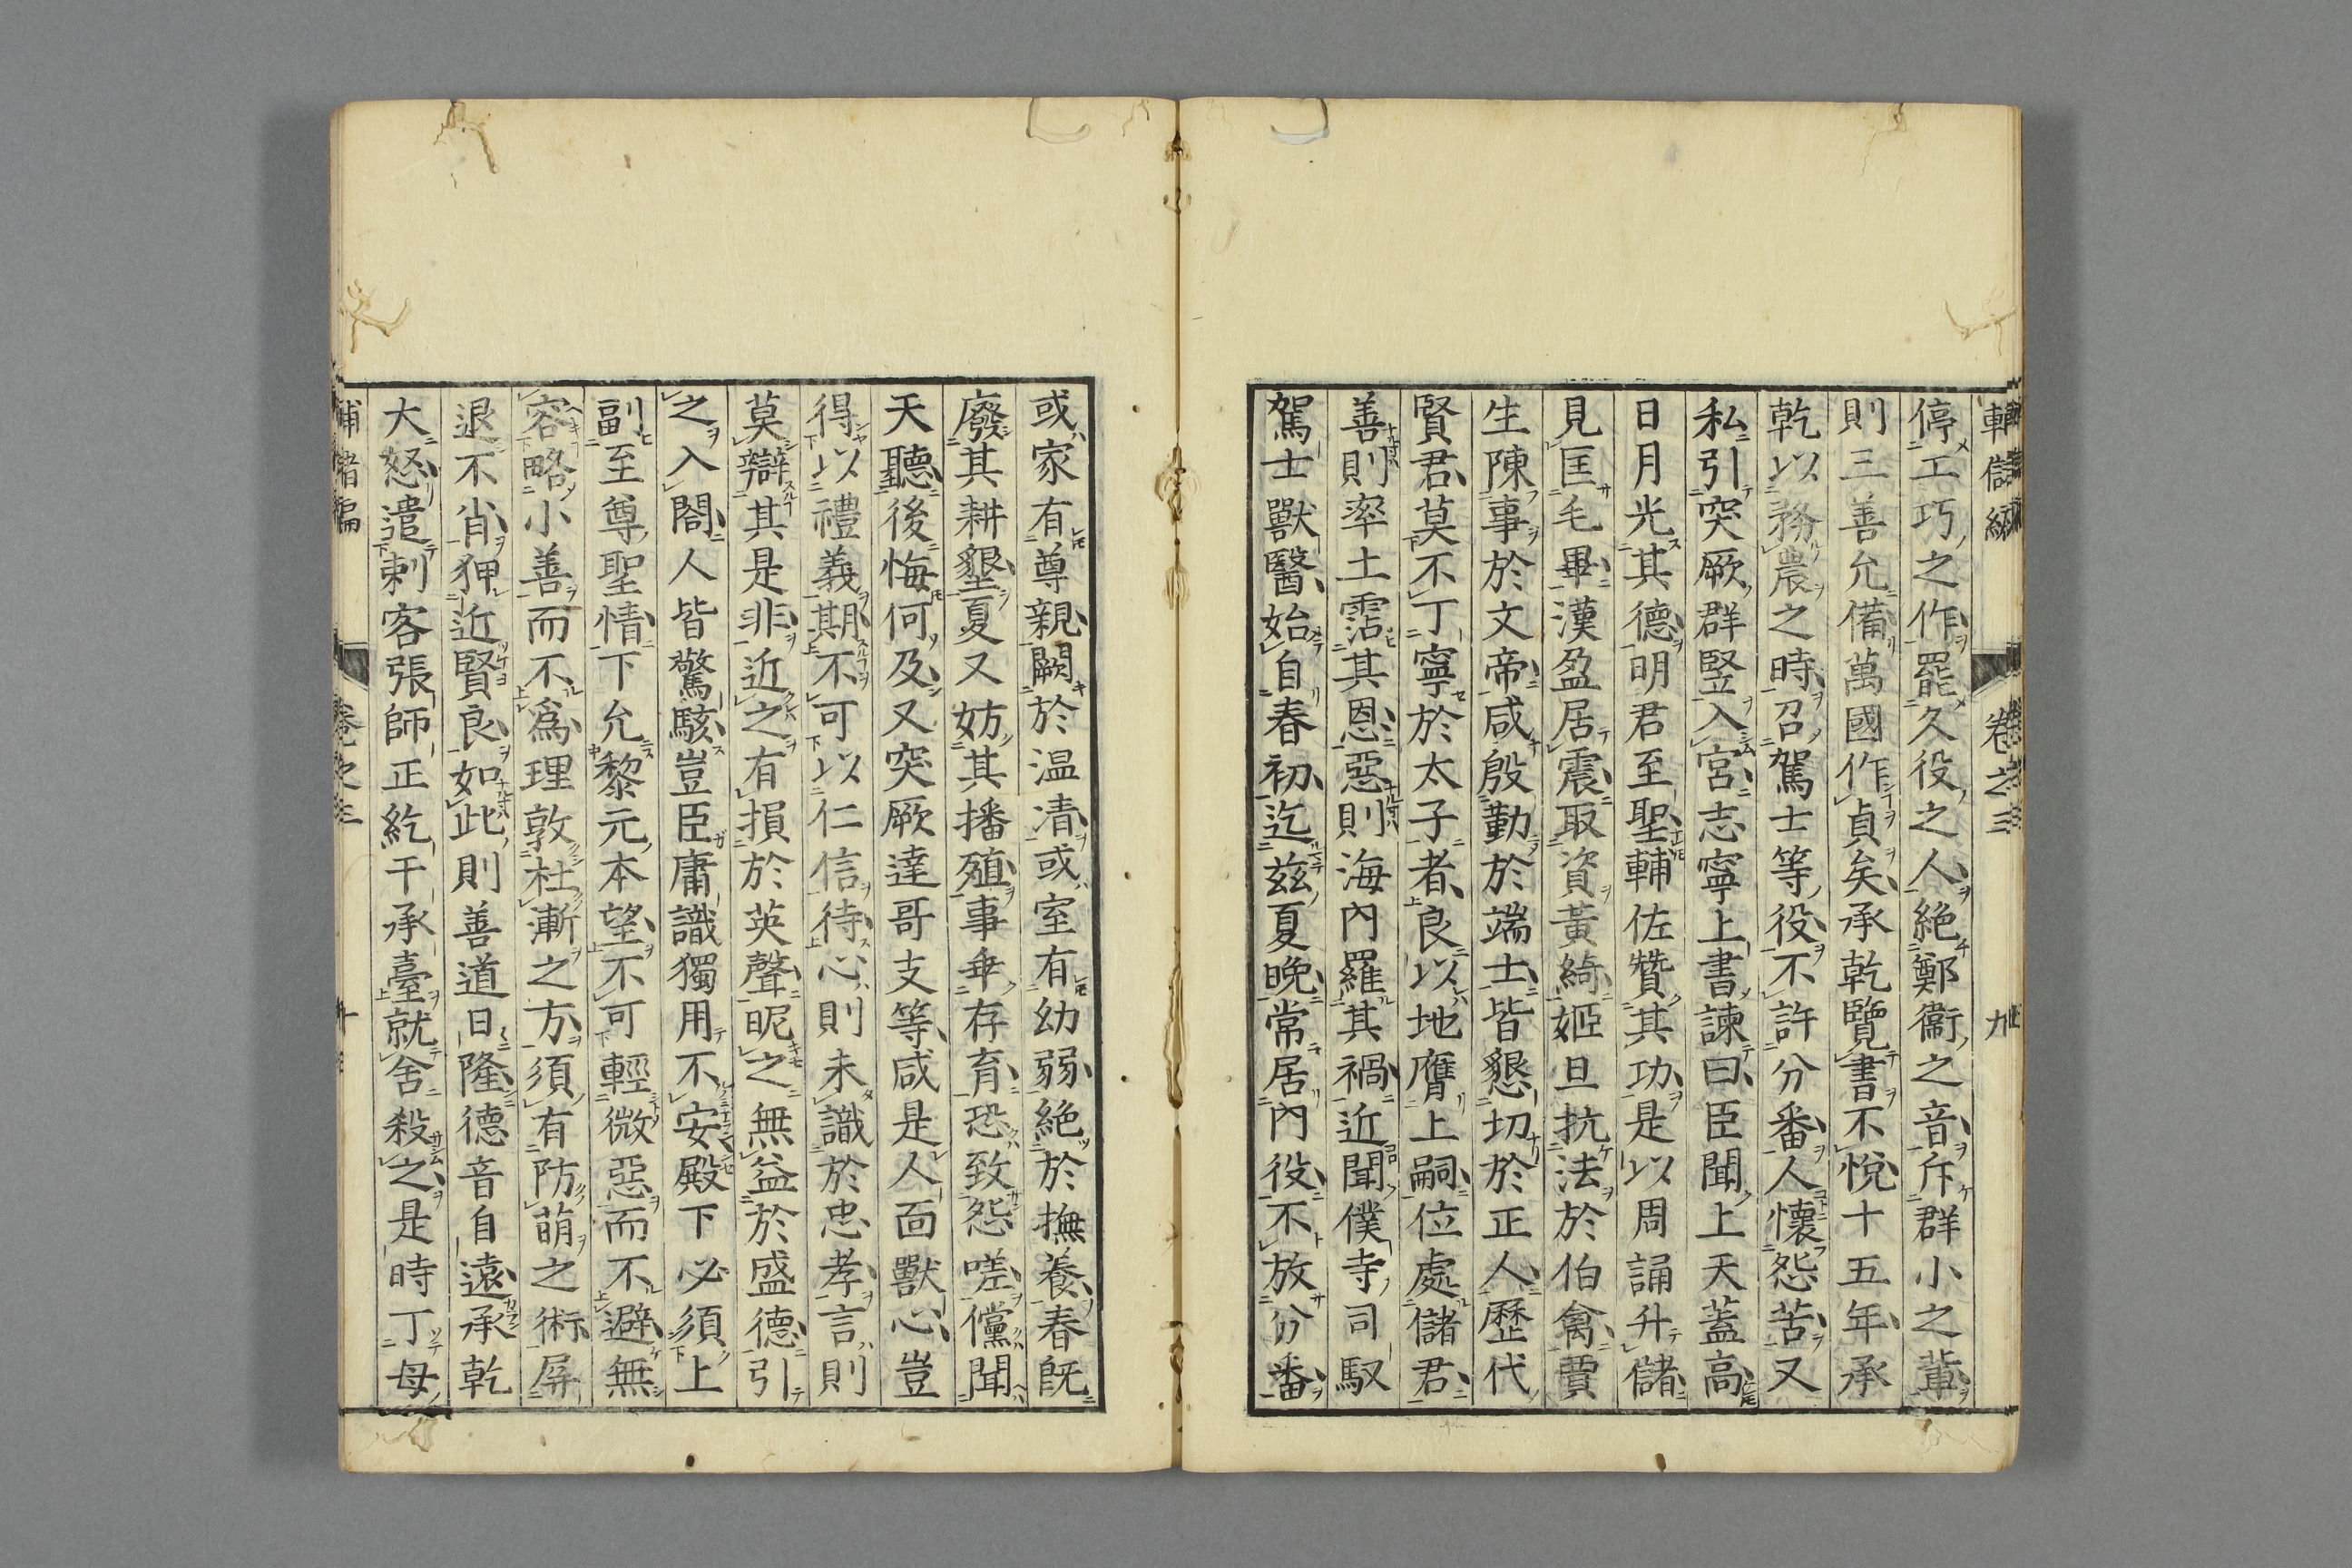 輔儲編 卷之三 九
停工巧之作罷久役之人絶鄭衞之音斥群小之輩
則三善允備萬國作貞矣承乾覽書不悅十五年承
乾以務農之時召駕士等役不許分番人懷怨苦又
私引突厥群竪入宮志寧上書諫曰臣聞上天蓋高
日月光其德明君至聖輔佐贊其功是以周誦升儲
見匡毛畢漢盈居震取資黃綺姬旦抗法於伯禽賈
生陳事於文帝咸殷勤於端士皆懇切於正人歷代
賢君莫不丁寧於太子者良以地膺上嗣位處儲君
善則率土霑其恩惡則海內羅其禍近聞僕寺司馭
駕士獸醫始自春初迄茲夏晚常居內役不放分番
或家有尊親闕於温凊或室有幼弱絶於撫養春旣
廢其耕墾夏又妨其播殖事乖存育恐致怨嗟儻聞
天聽後悔何及又突厥達哥支等咸是人面獸心豈
得以禮義期不可以仁信待心則未識於忠孝言則
莫辯其是非近之有損於英聲昵之無益於盛德引
之入閤人皆驚駭豈臣庸識獨用不安殿下必須上
副至尊聖情下允黎元本望不可輕微惡而不避無
容略小善而不爲理敦杜漸之方須有防萌之術屏
退不肖狎近賢良如此則善道日隆德音自遠承乾
大怒遣刺客張師正紇干承臺就舍殺之是時丁母
卷之三